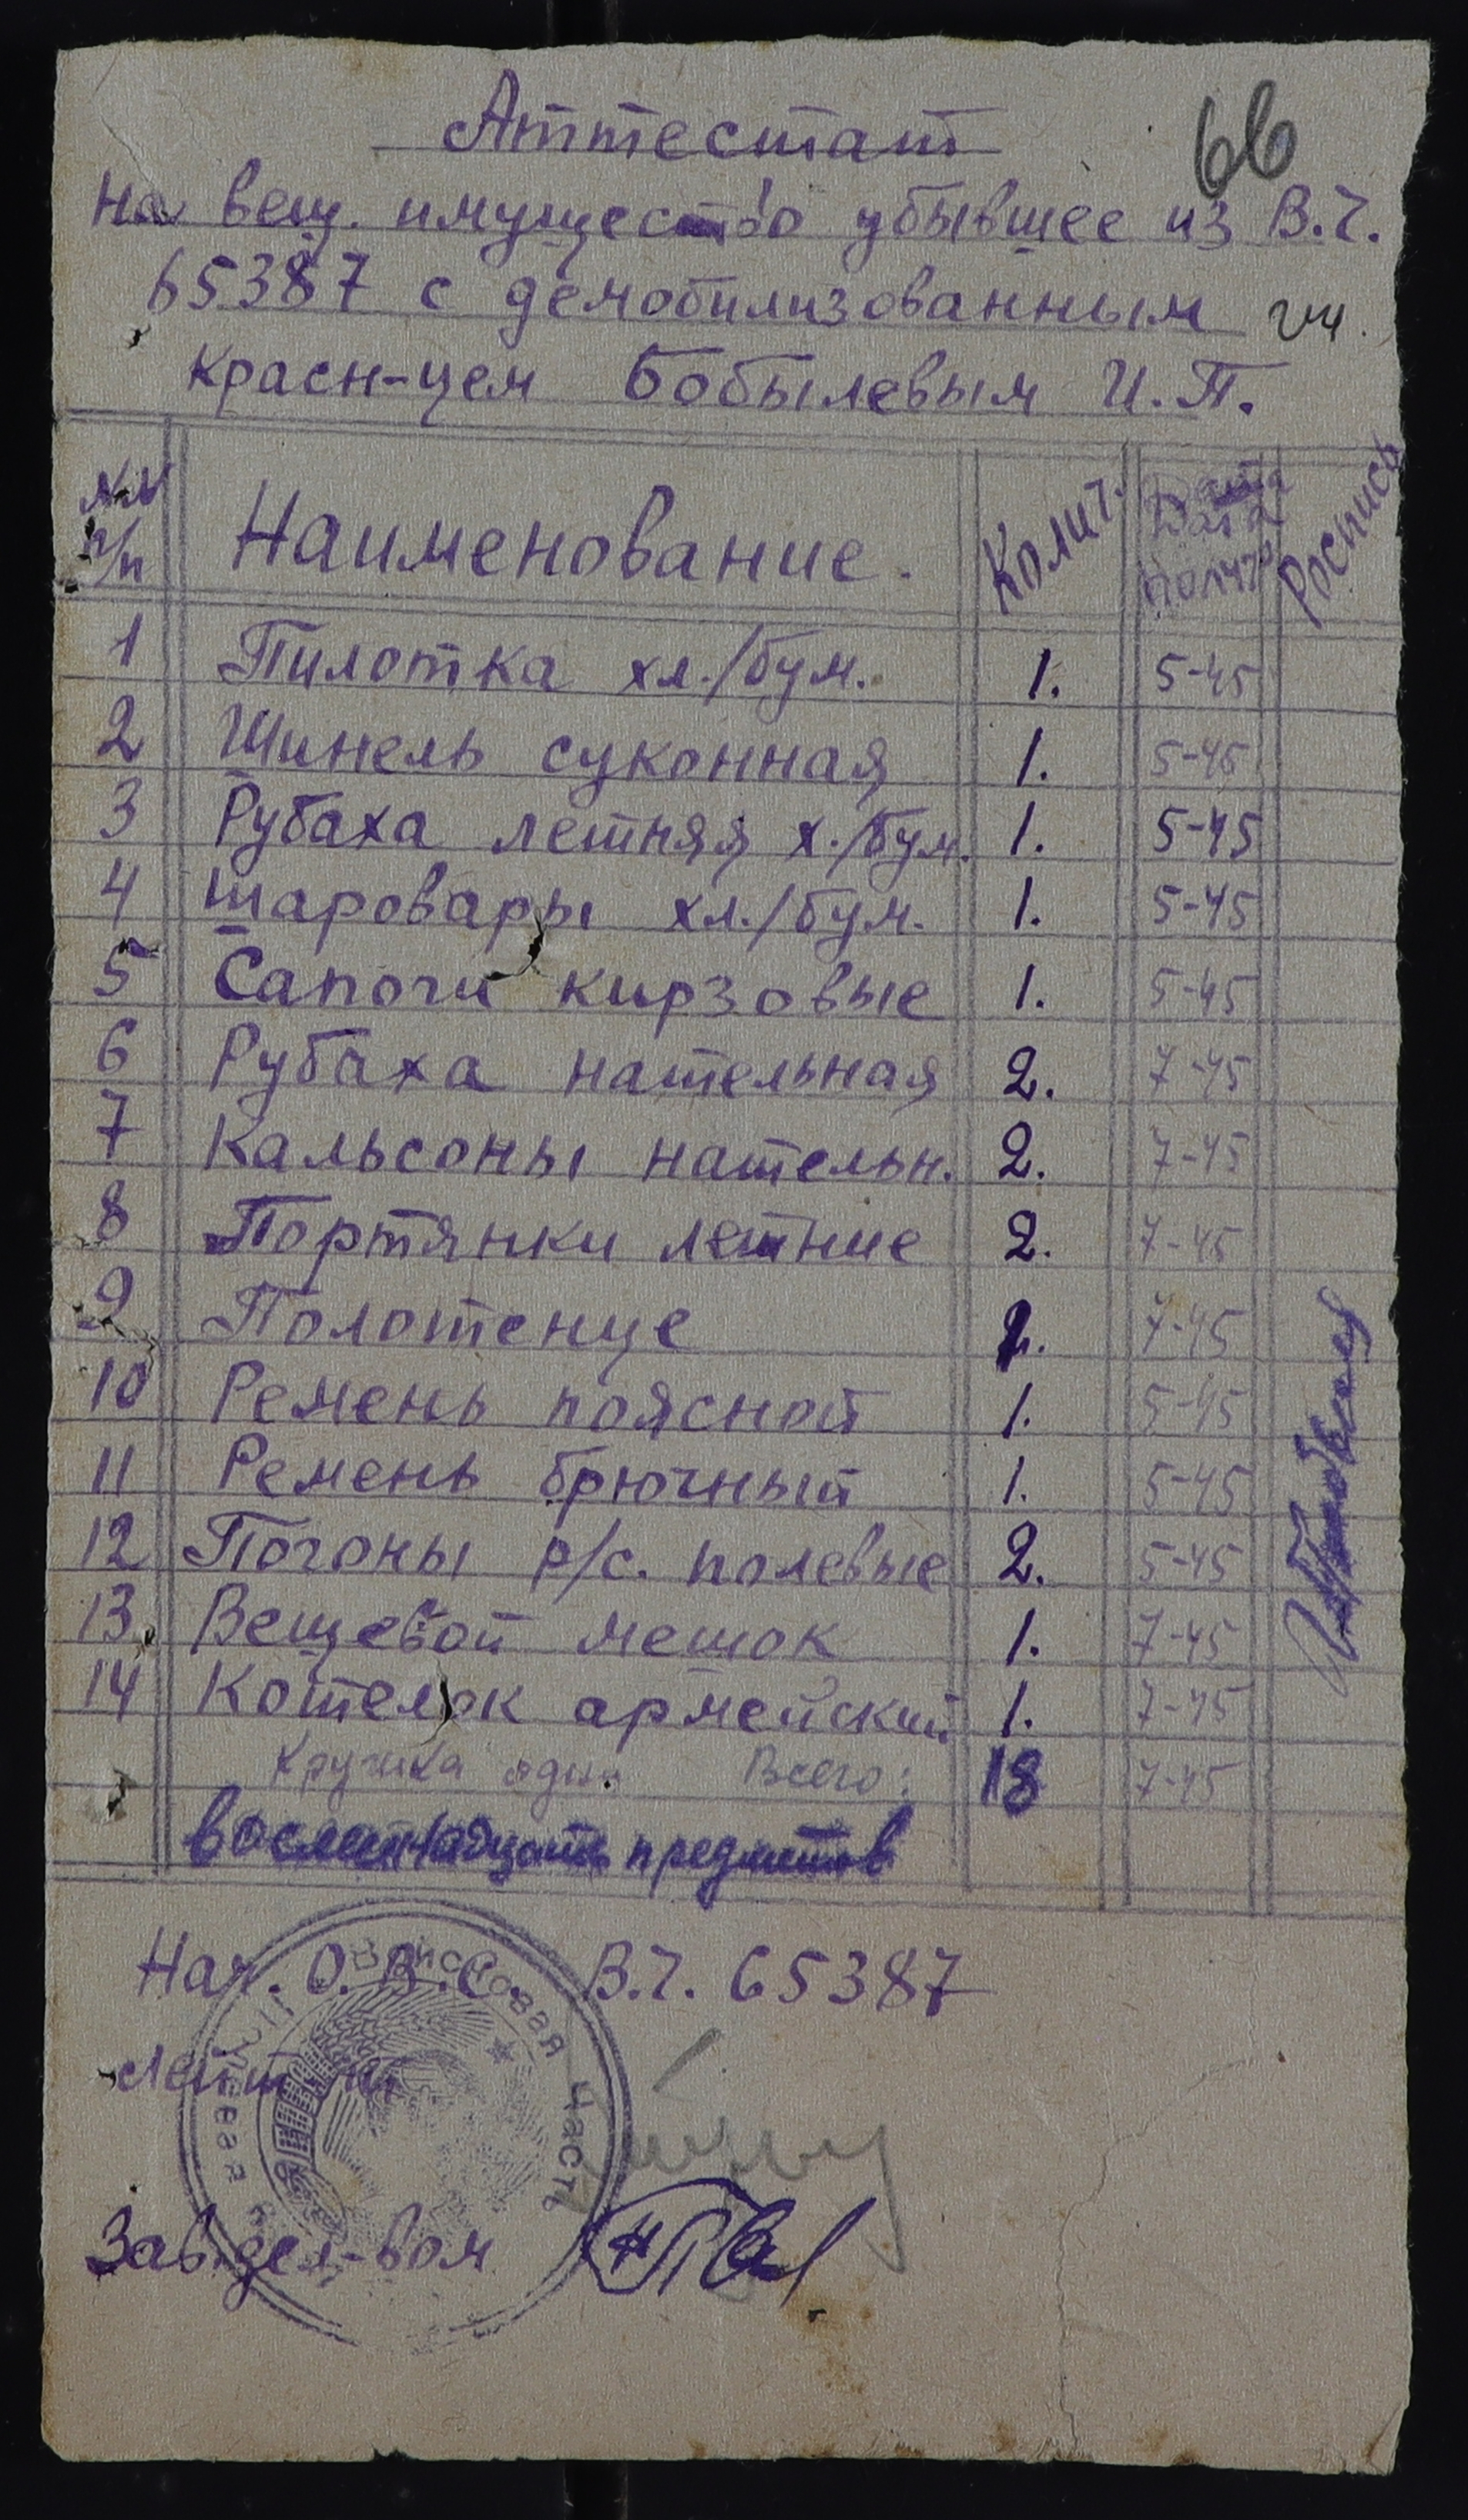 Аттестат
66
на вещ. имущество убывшее из В.Ч.
65387 с демобилизованным гв.
Красн-цем Бобылевым И.П.
№№ п/п Наименование. Колич. Дата получ. Роспись
1 Пилотка хл./бум. 1. 5-45
2 Шинель суконная 1. 5-45
3 Рубаха летняя х./бум. 1. 5-45
4 Шаровары хл./бум. 1. 5-45
5 Сапоги кирзовые 1. 5-45
6 Рубаха нательная 2. 7-45
7 Кальсоны нательн. 2. 7-45
8 Портянки летние 2. 7-45
9 Полотенце 1. 7-45
10 Ремень поясной 1. 5-45
11 Ремень брючный 1. 5-45
12 Погоны р/с. полевые 2. 5-45
13. Вещевой мешок 1. 7-45
14 Котелок армейский 1. 7-45
Кружка одна Всего: 18 7-45
восемнадцать предметов
Нач. О.В.С. В.Ч. 65387
Лейт-нт
Зав. дел-вом
Войсковая часть
Полевая